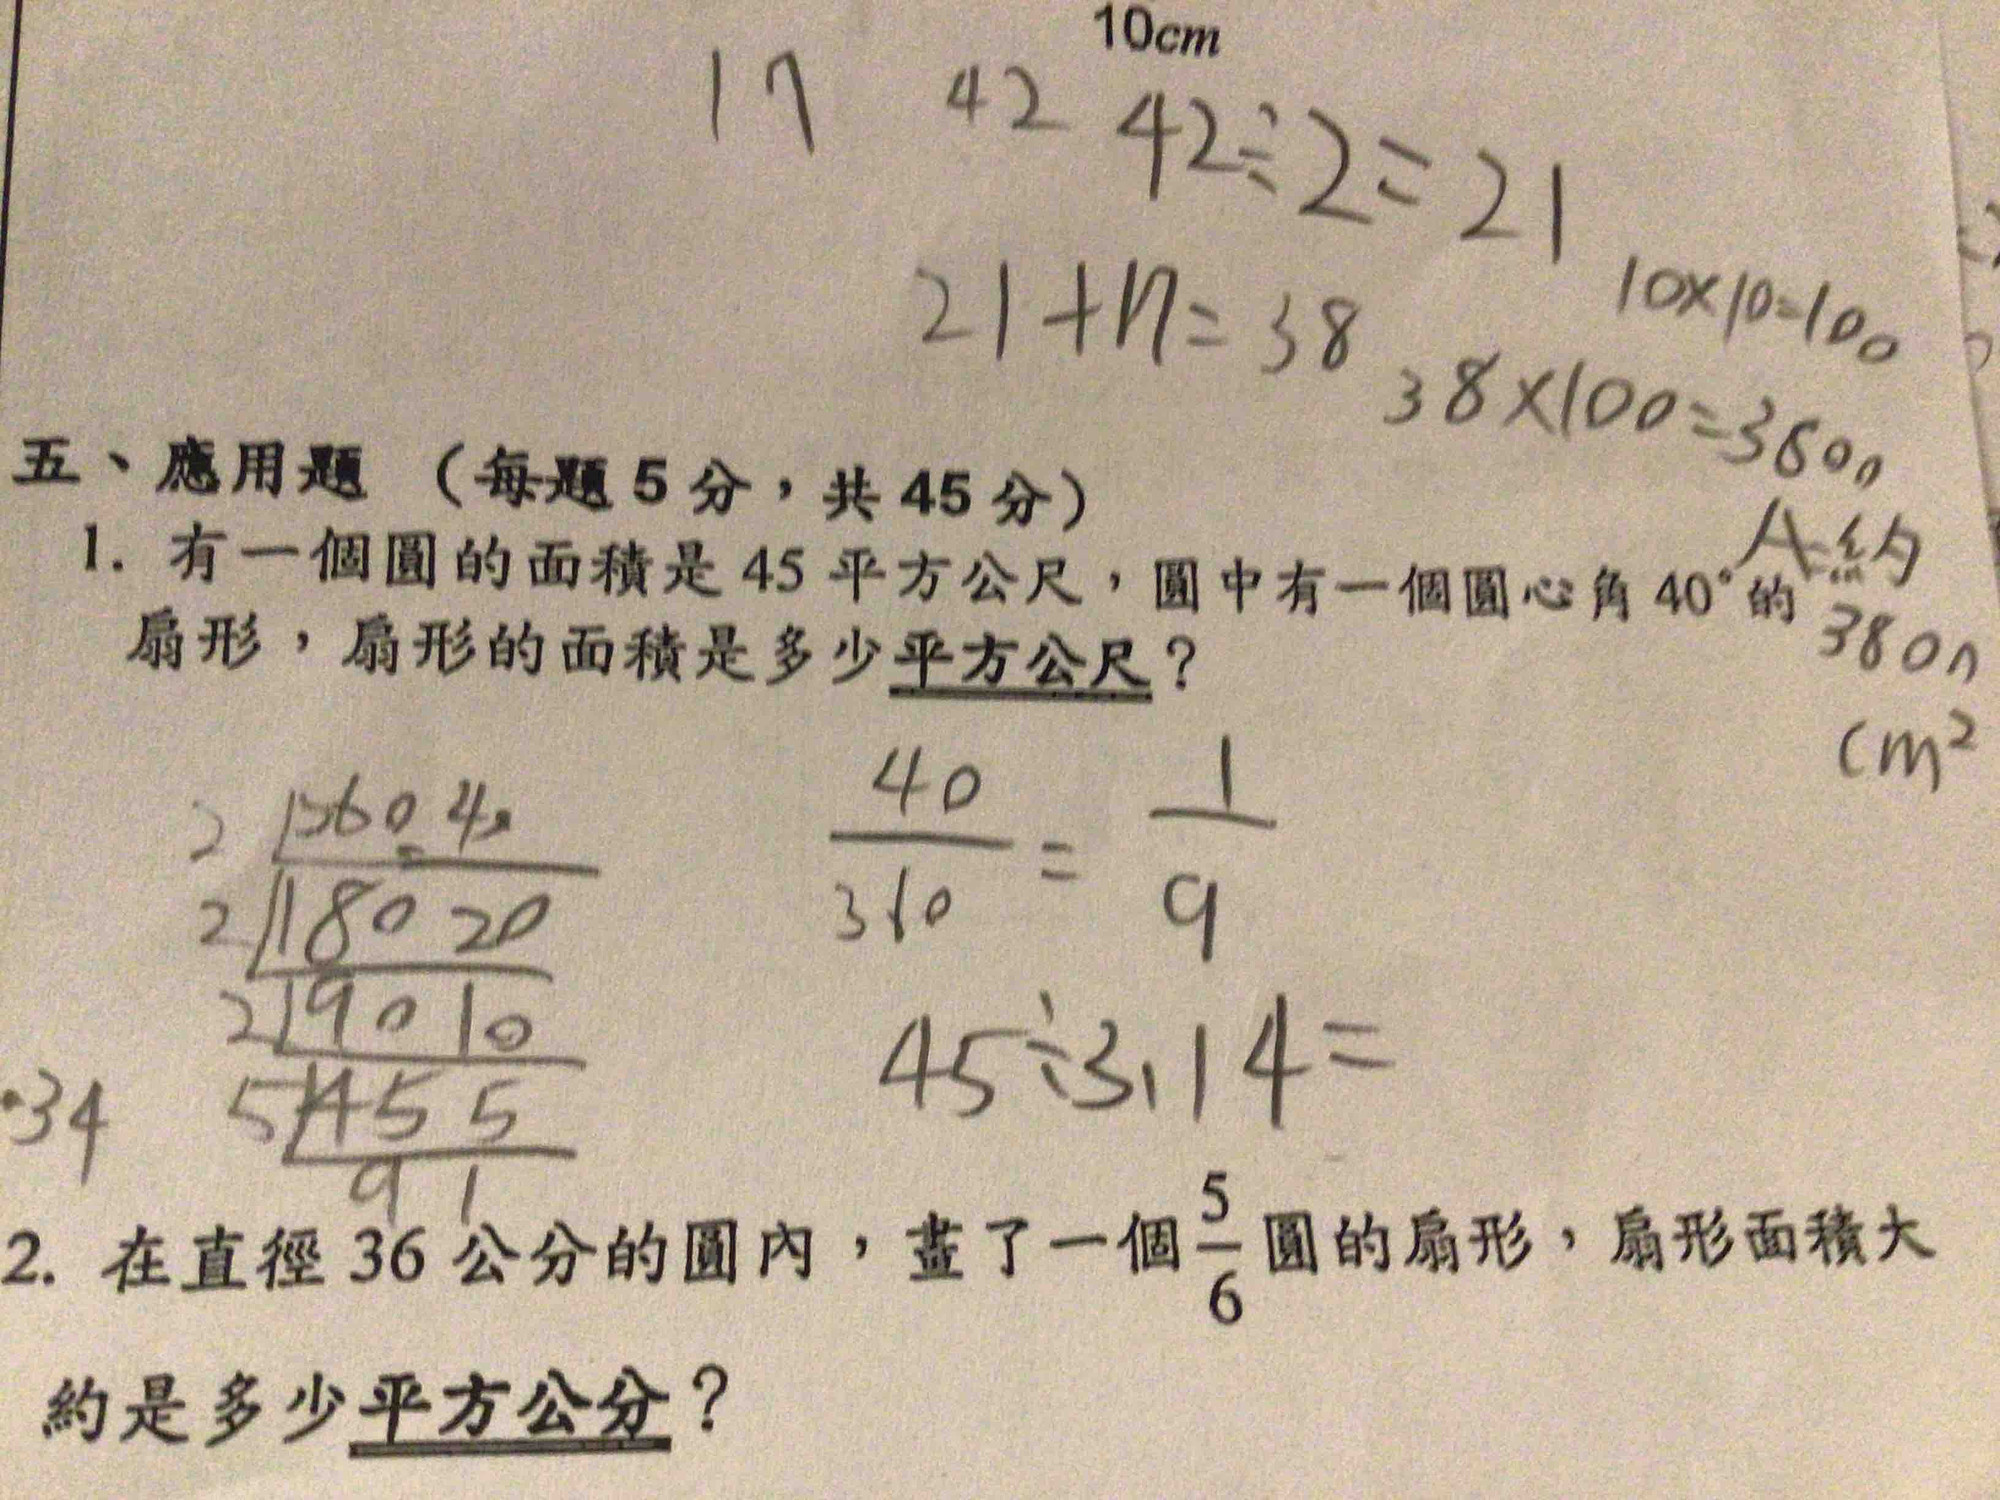 10cm
17 42 42÷2=21
21+17=38
10×10=100
38×100=3800
A:約
3800
cm²
五、應用題（每題5分，共45分）
1. 有一個圓的面積是45平方公尺，圓中有一個圓心角40°的
扇形，扇形的面積是多少平方公尺？
2 360 40
2 180 20
2 90 10
5 45 5
9 1
40/360 = 1/9
45÷3.14=
.34
2. 在直徑36公分的圓內，畫了一個5/6圓的扇形，扇形面積大
約是多少平方公分？